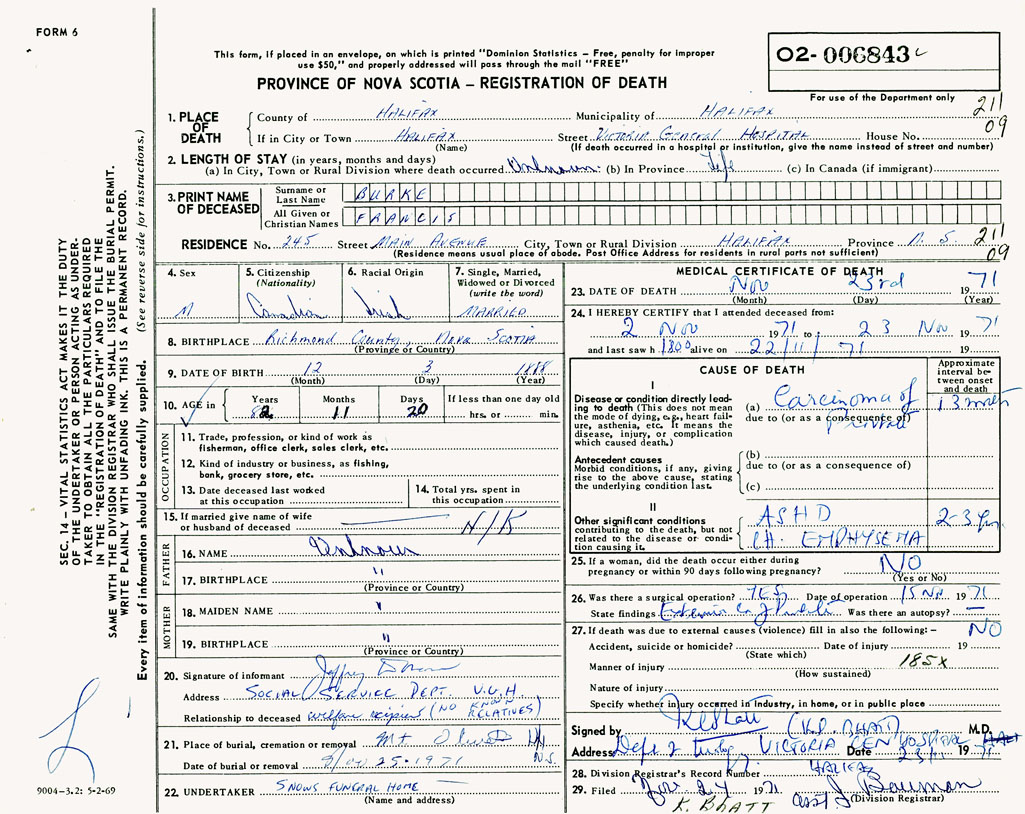 FORM 6
This form, if placed in an envelope, on which is printed "Dominion Statistics – Free, penalty for improper
use $50," and properly addressed will pass through the mail "FREE"
PROVINCE OF NOVA SCOTIA – REGISTRATION OF DEATH
02-006843
For use of the Department only
211
09
1. PLACE OF DEATH
County of HALIFAX Municipality of HALIFAX
If in City or Town HALIFAX Street VICTORIA GENERAL HOSPITAL House No.
(Name) (If death occurred in a hospital or institution, give the name instead of street and number)
2. LENGTH OF STAY (in years, months and days)
(a) In City, Town or Rural Division where death occurred Unknown (b) In Province Life (c) In Canada (if immigrant)
3. PRINT NAME OF DECEASED
Surname or Last Name BURKE
All Given or Christian Names FRANCIS
RESIDENCE No. 245 Street MAIN AVENUE City, Town or Rural Division HALIFAX Province N.S. 211
(Residence means usual place of abode. Post Office Address for residents in rural parts not sufficient) 09
4. Sex M
5. Citizenship (Nationality) Canadian
6. Racial Origin Irish
7. Single, Married, Widowed or Divorced (write the word) MARRIED
8. BIRTHPLACE Richmond County, NOVA SCOTIA
(Province or Country)
9. DATE OF BIRTH 12 3 1888
(Month) (Day) (Year)
10. AGE in Years 82 Months 11 Days 20 If less than one day old hrs. or min.
OCCUPATION
11. Trade, profession, or kind of work as
fishermen, office clerk, sales clerk, etc.
12. Kind of industry or business, as fishing,
bank, grocery store, etc.
13. Date deceased last worked
at this occupation
14. Total yrs. spent in
this occupation
15. If married give name of wife
or husband of deceased N/K
FATHER
16. NAME Unknown
17. BIRTHPLACE "
(Province or Country)
MOTHER
18. MAIDEN NAME "
19. BIRTHPLACE "
(Province or Country)
20. Signature of informant Jeffrey
Address SOCIAL SERVICE DEPT. V.G.H
Relationship to deceased welfare recipient (NO KNOWN RELATIVES)
21. Place of burial, cremation or removal Mt Olivet N.S.
Date of burial or removal Nov 25 - 1971
22. UNDERTAKER SNOWS FUNERAL HOME
(Name and address)
MEDICAL CERTIFICATE OF DEATH
23. DATE OF DEATH Nov 23rd 1971
(Month) (Day) (Year)
24. I HEREBY CERTIFY that I attended deceased from:
2 Nov 1971 to 23 Nov 1971
and last saw h 1800 alive on 22/11/71 19
CAUSE OF DEATH
Approximate interval between onset and death
I
Disease or condition directly leading to death (This does not
mean the mode of dying, e.g., heart failure, asthenia, etc. It means the
disease, injury, or complication
which caused death.)
(a) Carcinoma of Prostate 13 mnts
due to (or as a consequence of)
Antecedent causes
Morbid conditions, if any, giving
rise to the above cause, stating
the underlying condition last.
(b)
due to (or as a consequence of)
(c)
II
Other significant conditions
contributing to the death, but not
related to the disease or condition causing it.
ASHD 2-3 yrs
CH. EMPHYSEMA
25. If a woman, did the death occur either during
pregnancy or within 90 days following pregnancy? NO
(Yes or No)
26. Was there a surgical operation? YES Date of operation 15 Nov 1971
State findings Extensive Ca of Prostate Was there an autopsy? —
27. If death was due to external causes (violence) fill in also the following:– NO
Accident, suicide or homicide? Date of injury 19
(State which) 185X
Manner of injury
(How sustained)
Nature of injury
Specify whether injury occurred in industry, in home, or in public place
Signed by K D Bhatt (K.D. BHATT) M.D.
Address Dept. of Urology VICTORIA GEN HOSPITAL Date 23/11 1971
HALIFAX
28. Division Registrar's Record Number
29. Filed Nov 24 1971 asst J Bauman
K. BHATT (Division Registrar)
SEC. 14 – VITAL STATISTICS ACT MAKES IT THE DUTY
OF THE UNDERTAKER OR PERSON ACTING AS UNDER-
TAKER TO OBTAIN ALL THE PARTICULARS REQUIRED
IN THE "REGISTRATION OF DEATH" AND FILE THE
SAME WITH THE DIVISION REGISTRAR WHO SHALL ISSUE THE BURIAL PERMIT.
WRITE PLAINLY WITH UNFADING INK. THIS IS A PERMANENT RECORD.
Every item of information should be carefully supplied. (See reverse side for instructions.)
9004-3.2: 5-2-69